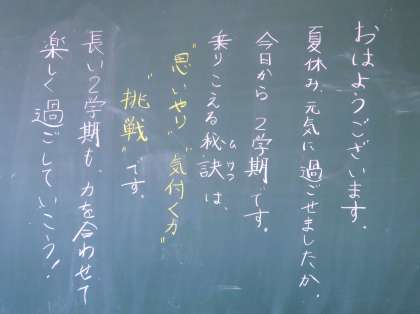 おはようございます。
夏休み、元気に過ごせましたか。
今日から2学期です。
乗りこえる秘訣は、
"思いやり""気付く力"
"挑戦"です。
長い2学期も、力を合わせて
楽しく過ごしていこう!